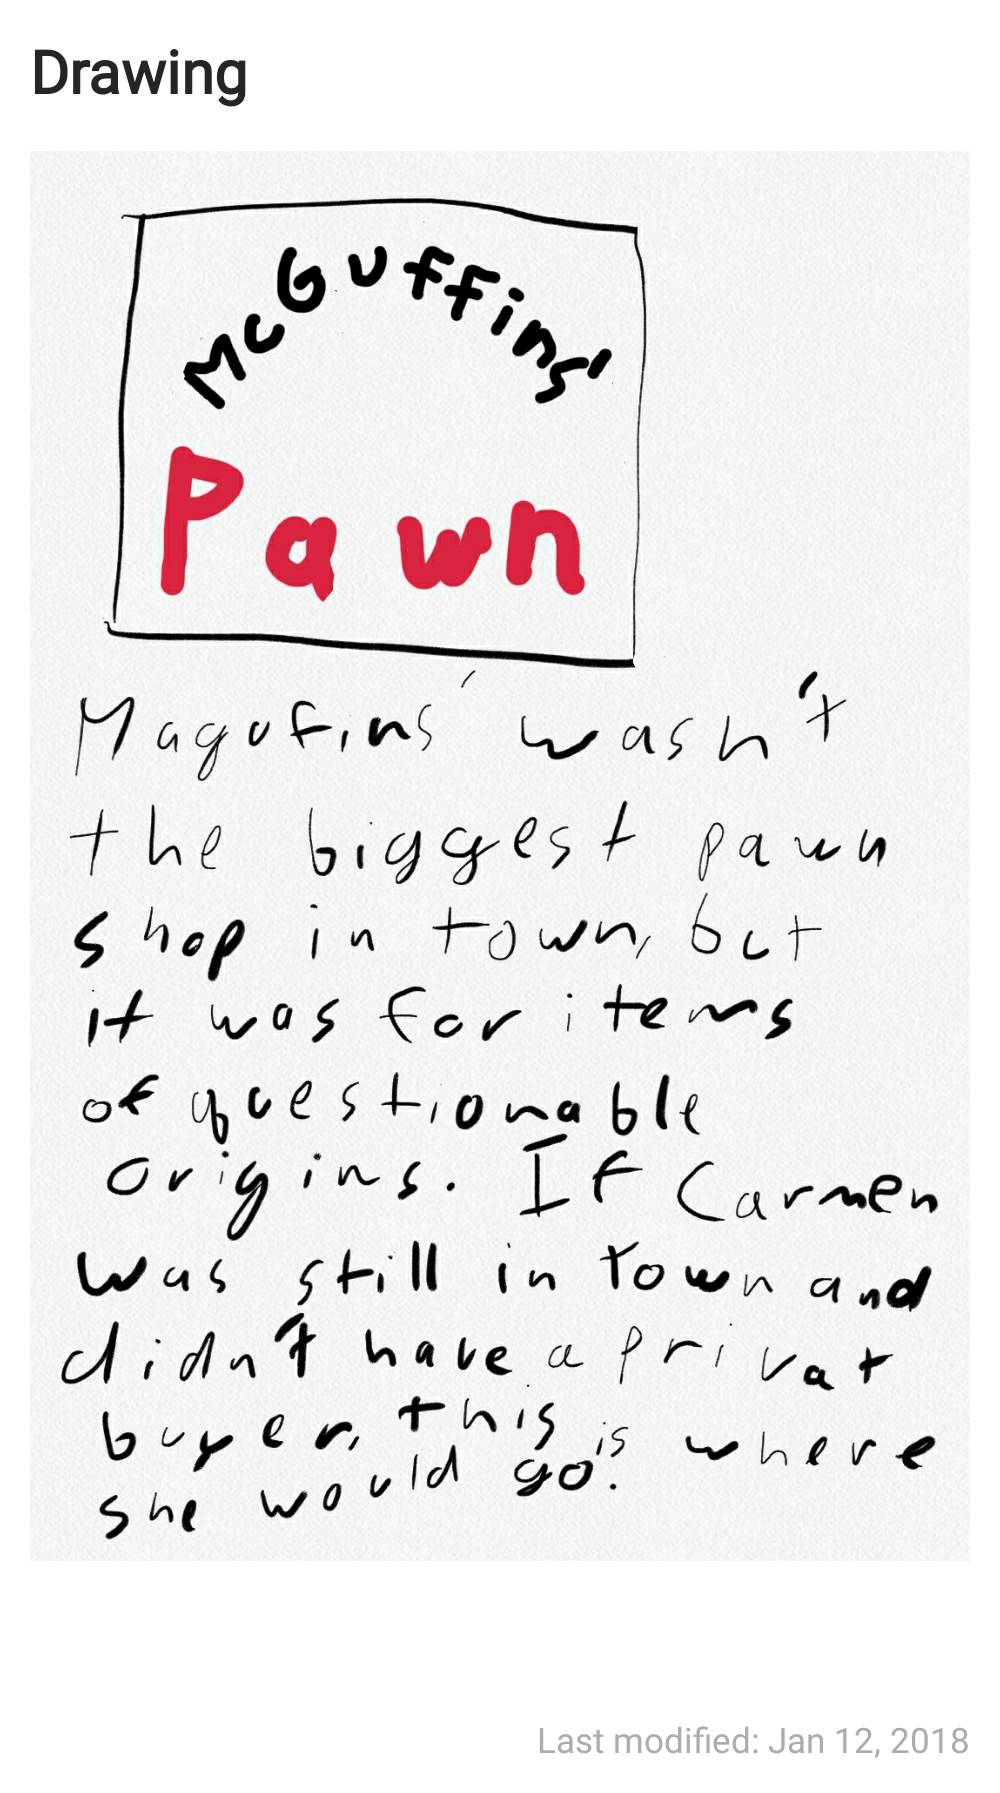 Drawing
McGuffins'
Pawn
Magufins' wasn't
the biggest pawn
shop in town, but
it was for items
of questionable
origins. If Carmen
was still in town and
didn't have a privat
buyer, this is where
she would go.
Last modified: Jan 12, 2018